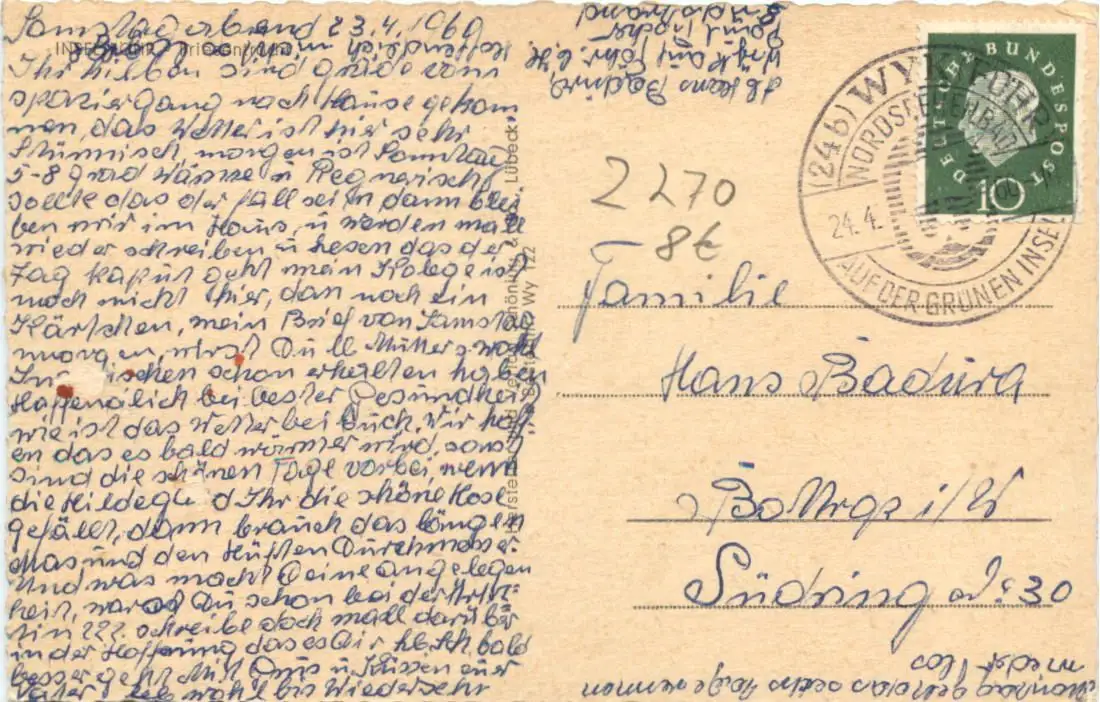 Samstagabend 23.4.1960
INSEL FÖHR Friesentracht
Ihr Lieben sind grade vom
spaziergang nach Hause gekom
men, das Wetter ist hier sehr
Stürmisch, morgen ist Sonntag
5-8 grad Wärme u Regnerisch
sollte das der fall sein dann blei
ben wir im Haus, u werden mall
wieder schreiben u lesen das der
Tag kaput geht mein Kolege ist
noch nicht hier, dan noch ein
Kärtchen, mein Brief von Samstag
morgen, wirst Du ll Mutter wohl
In ischen schon erhalten haben
Hoffendlich bei bester Gesundheit
wie ist das Wetter bei Euch. Wir hoff
en das es bald wärmer wird, sonst
sind die schönen Tage vorbei, wenn
die Hildega d Ihr die schöne Hose
gefällt, dann brauch das längen
Mas und den Hüften Durchmesser.
Und was macht Deine angelegen
heit, warst Du schon bei der Ärtz-
tin ???. schreibe doch mall darüber
in der Hoffnung das es Dir lb. Ith bald
besser geht Mit Grus u. Küssen euer
Vater Leb wohl bis Wiedersehn
Ab Hans Badura,
Wyk auf Föhr. b/
Schöning & Lübeck
Wy 122
DEUTSCHE BUNDESPOST
10
(24b) WYK FÖHR
NORDSEEHEILBAD
24.4.
AUF DER GRÜNEN INSEL
2270
8€
Familie
Hans Badura
Bottrop i/W
Südring No: 30
Montag geht das sechs
wieder los